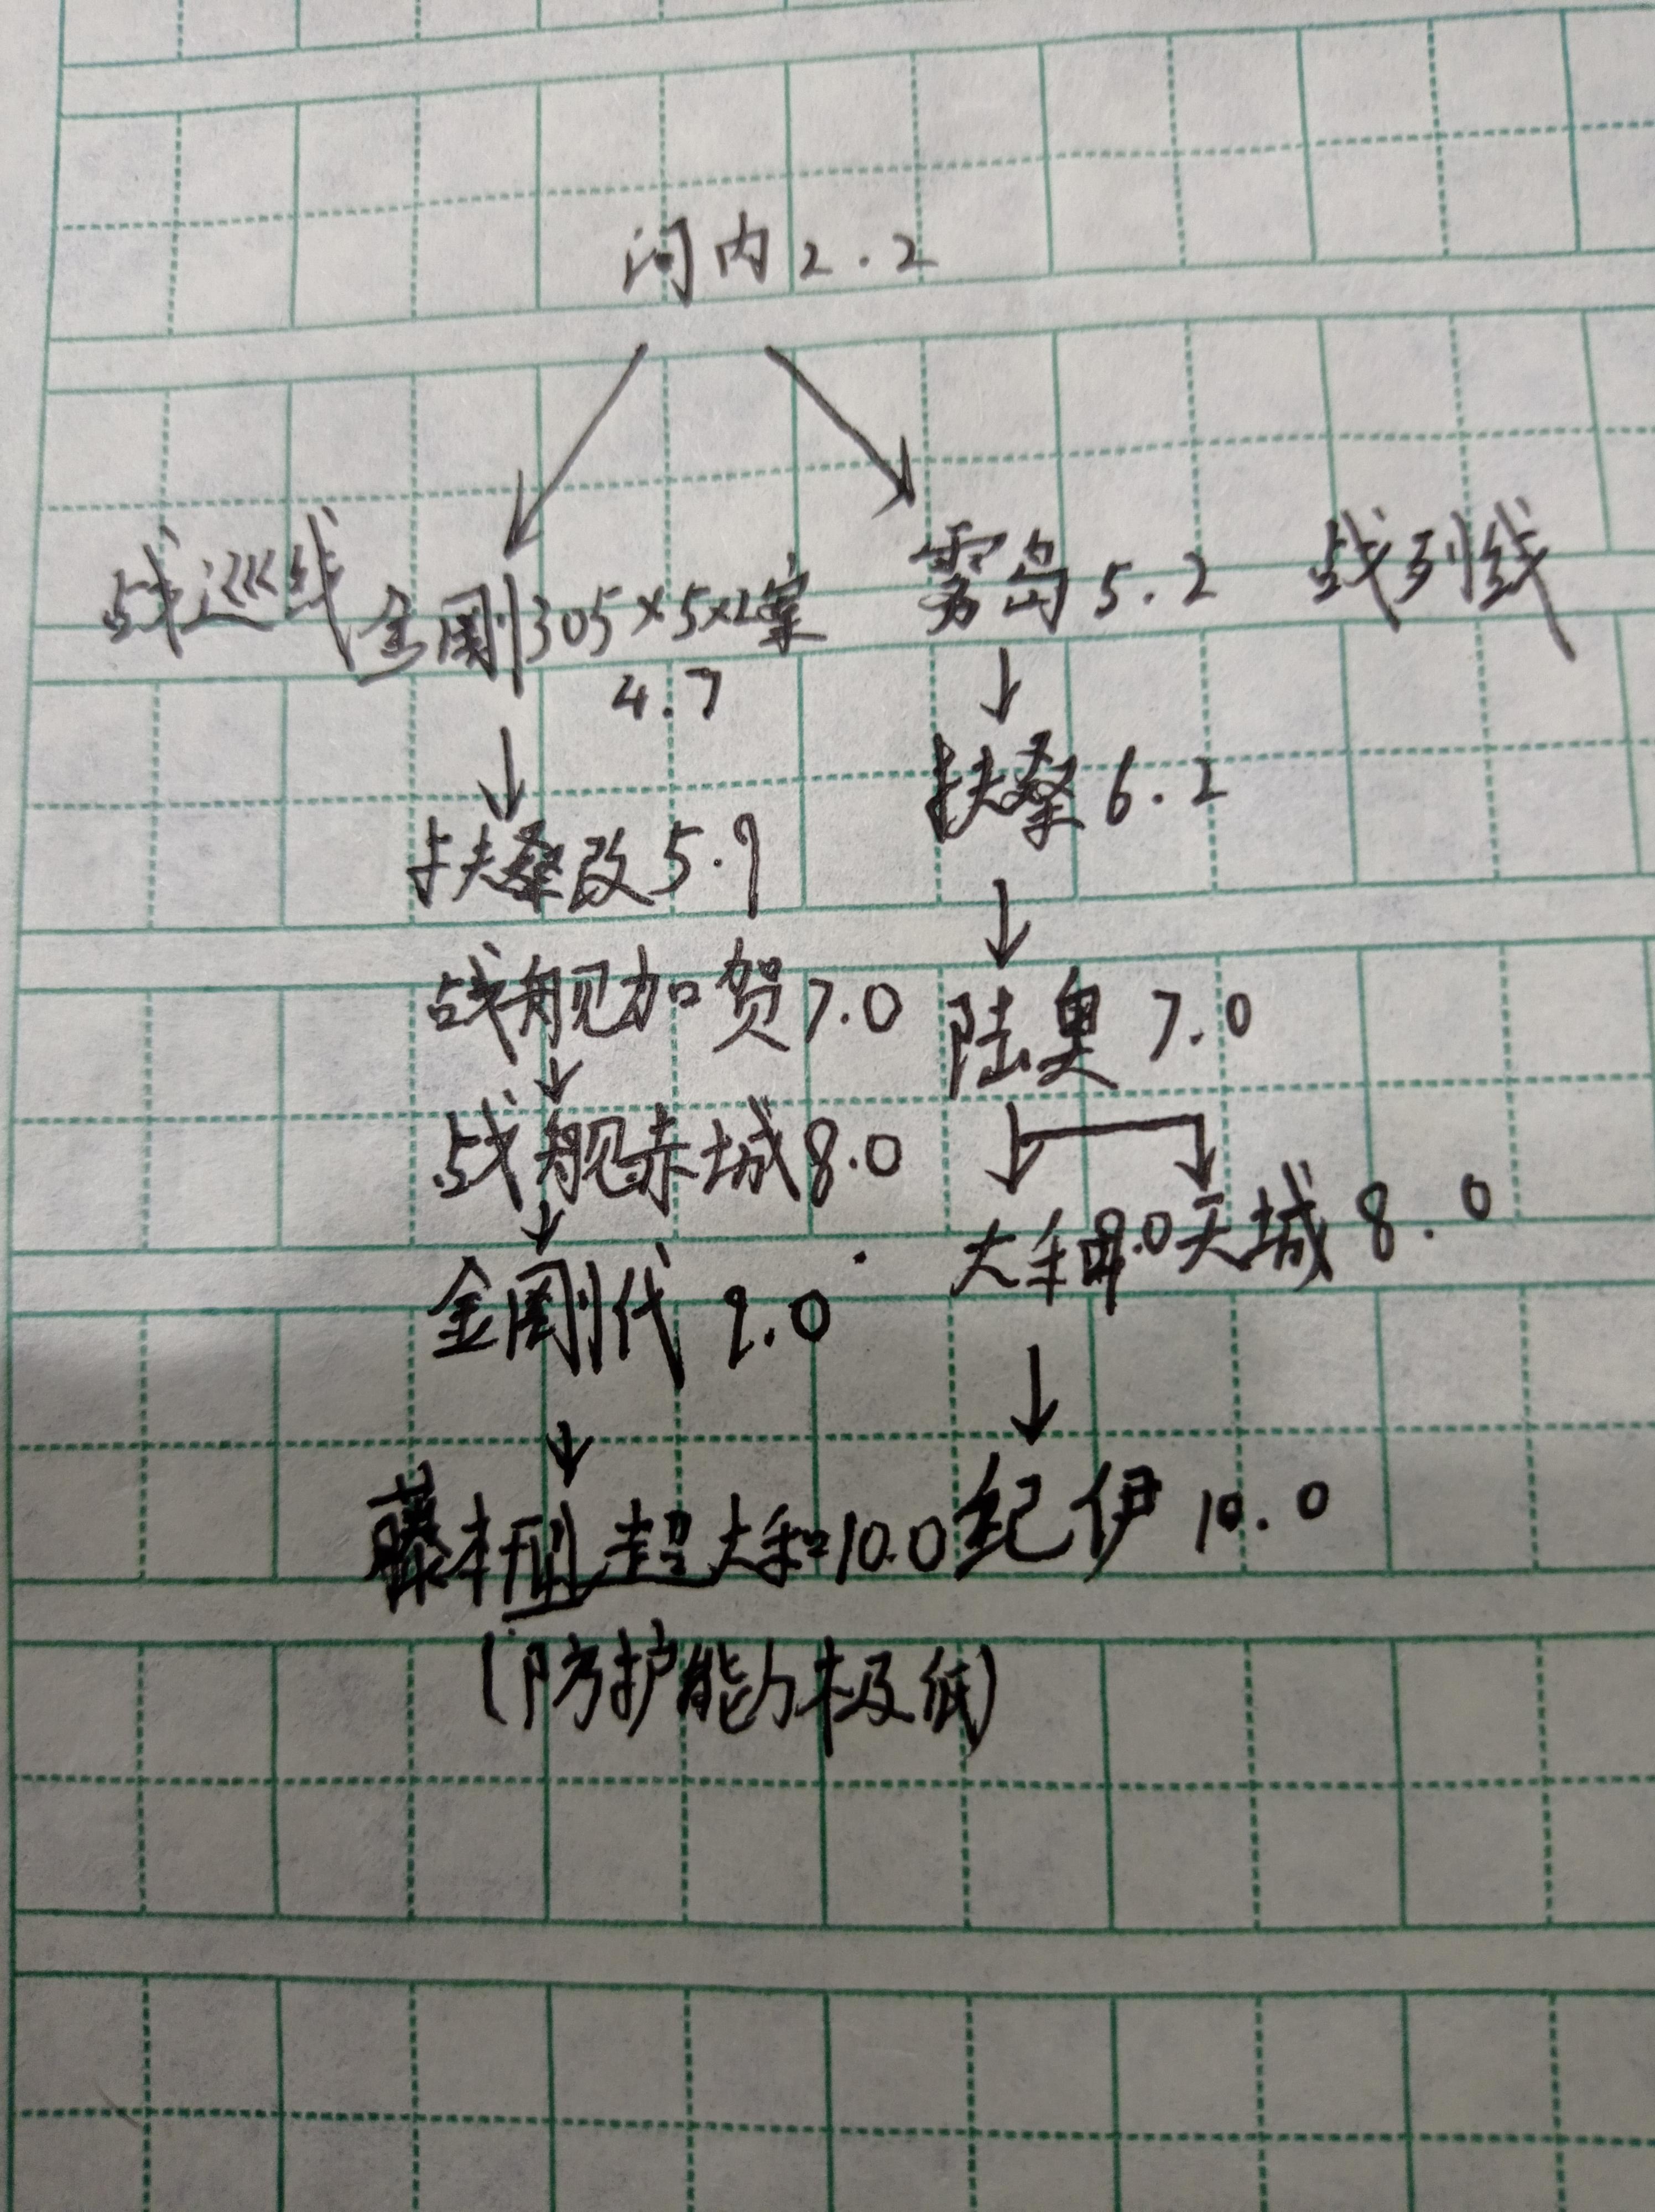 河内2.2
战巡线 金刚305×5×2案 雾岛5.2 战列线
4.7
扶桑6.2
扶桑改5.9
战舰加贺7.0 陆奥7.0
战舰赤城8.0
大和 .0 天城8.0
金刚代 9.0
藤本型超大和10.0 纪伊10.0
(防护能力极低)